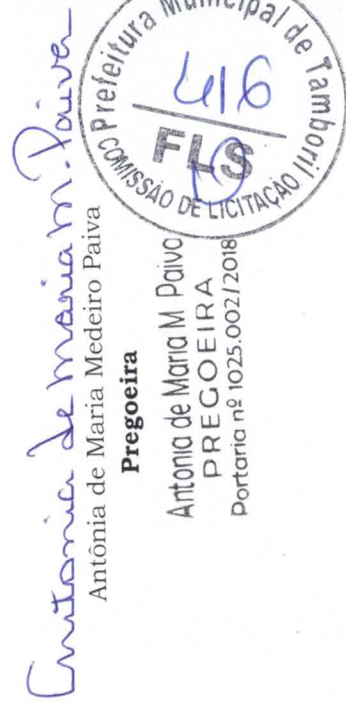 Antonia de Maria M. Paiva
Antônia de Maria Medeiro Paiva
Pregoeira
Antonia de Maria M Paiva
PREGOEIRA
Portaria nº 1025.002/2018
Prefeitura Municipal de Tamboril
416
FLS
COMISSÃO DE LICITAÇÃO